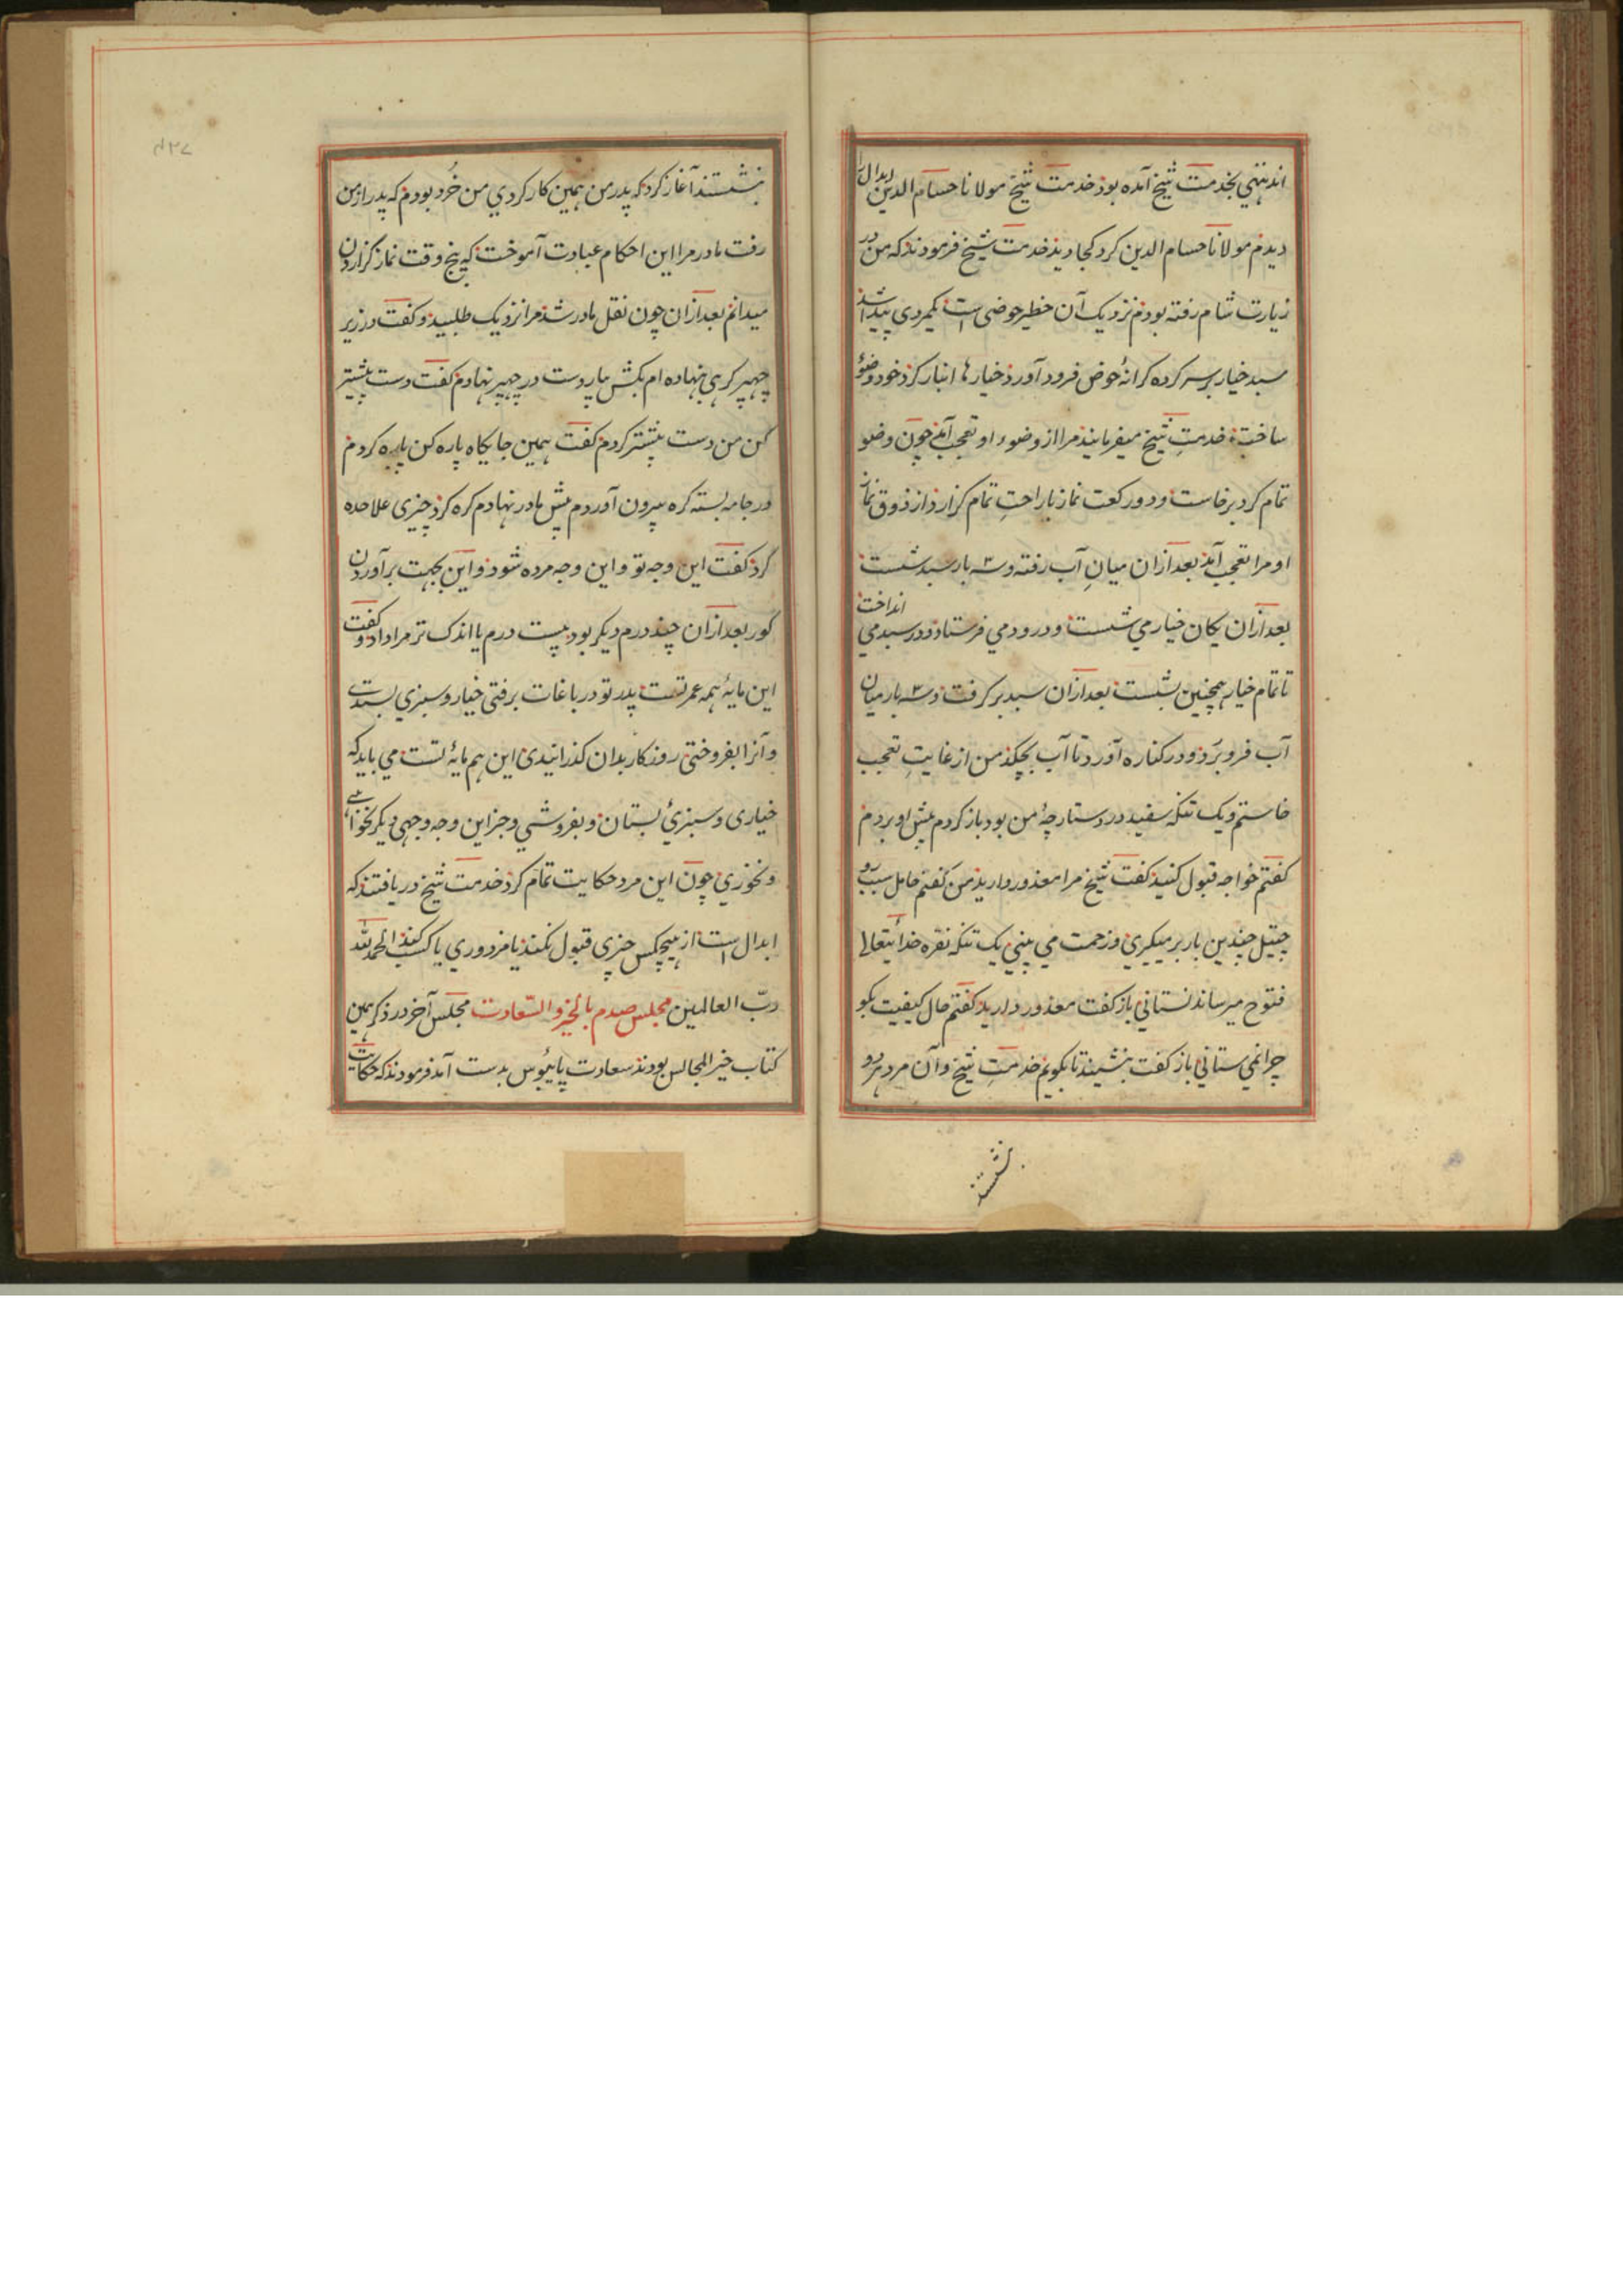 اندیتهی بخدمت شیخ آمده بود خدمت شیخ مولانا حسام الدین ابدال را
دیدم مولانا حسام الدین کرد کجا دید خدمت شیخ فرمودند که من در
زیارت شام رفته بودم نزدیک آن خطیر حوضی است یکمردی پیدا شد
سبد خیار بر سر کرده کرانهٔ حوض فرود آورد خیارها انبار کرد خود وضؤ
ساخت خدمتِ شیخ میفرمایند مرا از وضوء او تعجب آمد چون وضو
تمام کرد برخاست و دو رکعت نماز باراحتِ تمام کزارد از ذوق نماز
او مرا تعجب آمد بعد ازان میانِ آب رفته و سه بار سبد شست
بعد ازان یکان خیار می شست و درود می فرستاد و در سبد می انداخت
تا تمام خیار همچنین بشست بعد ازان سبد بر کرفت و سه بار میان
آب فرو برَد و در کناره آورد تا آب بچکد من از غایتِ تعجب
خاستم و یک تنکه سفید در دستارچهٔ من بود باز کردم پیش او بردم
کفتم خواجه قبول کنید کفت شیخ مرا معذور دارید من کفتم حامل سبب دو
جیتل چندین بار بر میکیری و زحمت می بینی یک تنکه نقره خدائیتعالی
فتوح میرساند نستانی باز کفت معذور دارید کفتم حال کیفیت بکو
چرا نمی ستانی باز کفت بنشینید تا بکویم خدمتِ شیخ و آن مرد هر دو
بنشستند
بنشستند آغاز کرد که پدر من همین کار کردی من خُرد بودم که پدر از من
رفت مادر مرا این احکام عبادت آموخت که پنج وقت نماز کزاردن
میدانم بعد ازان چون نقل مادر شد مرا نزدیک طلبید و کفت در زیر
چهپر کرهی نهاده ام بکش بیار دست در چهپر نهادم کفت دست پیشتر
کن من دست پیشتر کردم کفت همین جایکاه پاره کن پاره کردم
در جامه بسته کره بیرون آوردم پیش مادر نهادم کره کرد چیزی علاحده
کرد کفت این وجه تو و این وجه مرده شود و این بجهت برآوردن
کور بعد ازان چند درم دیکر بود بیست درم یا اندک تر مرا داد و کفت
این مایهٔ همه عمر تست پدر تو در باغات برفتی خیار و سبزی بستدی
و آنرا بفروختی روزکار بدان کذرانیدی این هم مایهٔ تست می باید که
خیاری و سبزیٔ بستان و بفروشی و جز این وجه وجهی دیکر نخواهی
و نخوری چون این مرد حکایت تمام کرد خدمت شیخ دریافتند که
ابدال است از هیچکس چیزی قبول نکنند یا مزدوری یا کسب کنند الحمدلله
ربّ العالمین مجلس صدم بالخیر والسّعادت مجلس آخر در ذکر همین
کتاب خیر المجالس بودند سعادت پائبوس بدست آمد فرمودند که حکایت